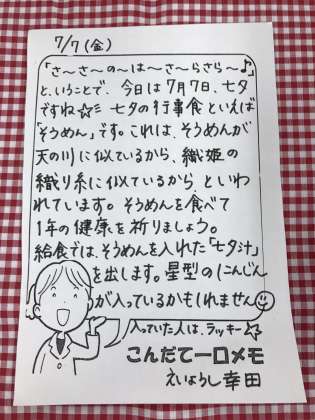 7/7(金)
「さ〜さ〜の〜は〜さ〜らさら〜♪」
と、いうことで、今日は7月7日、七夕
ですね☆ミ 七夕の行事食といえば
「そうめん」です。これは、そうめんが
天の川に似ているから、織姫の
織り糸に似ているから、といわ
れています。そうめんを食べて
1年の健康を祈りましょう。
給食では、そうめんを入れた「七夕汁」
を出します。星型のにんじん
が入っているかもしれません
入っていた人は、ラッキー☆
こんだて一口メモ
えいようし 幸田